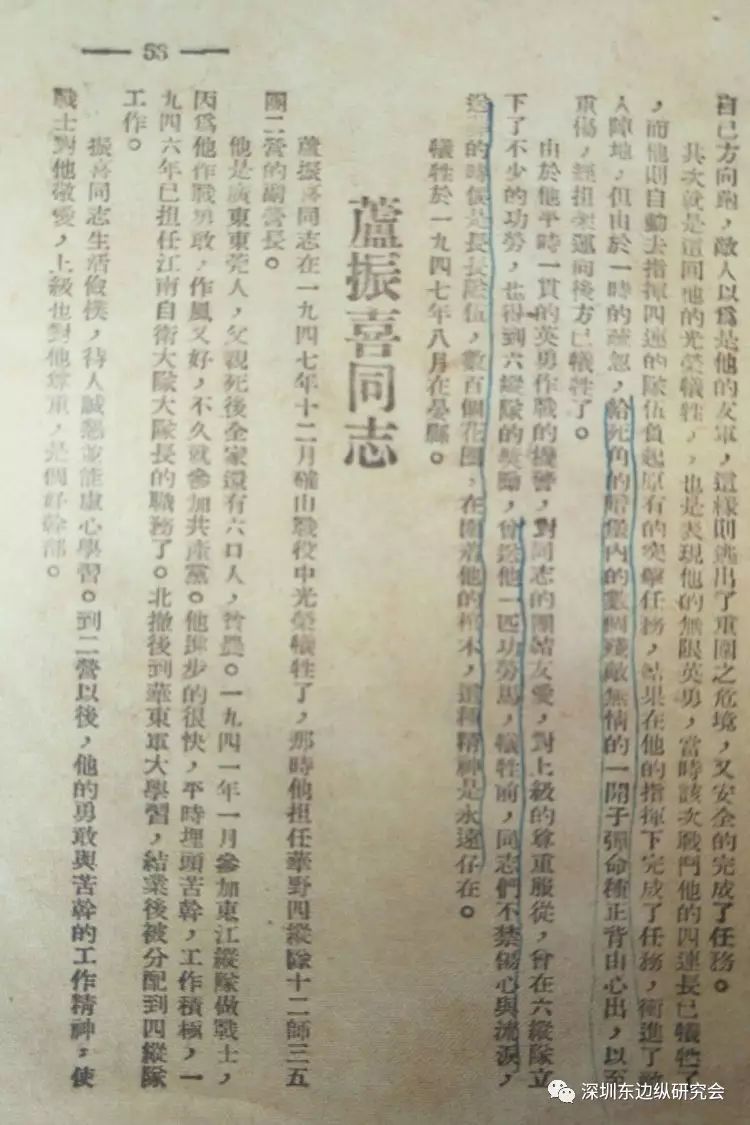 — 53 —
自己方向跑，敵人以爲是他的友軍，這樣則逃出了重圍之危境，又安全的完成了任務。
其次就是這回他的光榮犧牲，也是表現他的無限英勇，當時該次戰鬥他的四連長已犧牲了
，而他則自動去指揮四連的隊伍負起原有的突擊任務，結果在他的指揮下完成了任務，衝進了敵
人陣地，但由於一時的疏忽，給死角的暗堡內的數個殘敵無情的一開子彈命種正背由心出，以至
重傷，經担架運向後方已犧牲了。
由於他平時一貫的英勇作戰的機警，對同志的團結友愛，對上級的尊重服從，曾在六縱隊立
下了不少的功勞，也得到六縱隊的獎勵，曾送他一匹功勞馬，犧牲前，同志們不禁傷心與流淚，
的時候是長長隊伍，數百個花圈，在圍着他的棺木，這種精神是永遠仔在。
犧牲於一九四七年八月在縣。
蘆振喜同志
蘆振喜同志在一九四七年十二月確山戰役中光榮犧牲了，那時他担任華野四縱隊十二師三五
團二營的副營長。
他是廣東東莞人，父親死後全家還有六口人，貧農。一九四一年一月參加東江縱隊做戰士，
因爲他作戰勇敢，作風又好，不久就參加共產黨。他進步的很快，平時埋頭苦幹，工作積極，一
九四六年已担任江南自衛大隊大隊長的職務了。北撤後到華東軍大學習，結業後被分配到四縱隊
工作。
振喜同志生活儉樸，待人誠懇並能虛心學習。到二營以後，他的勇敢與苦幹的工作精神，使
戰士對他敬愛，上級也對他尊重，是個好幹部。
深圳东边纵研究会